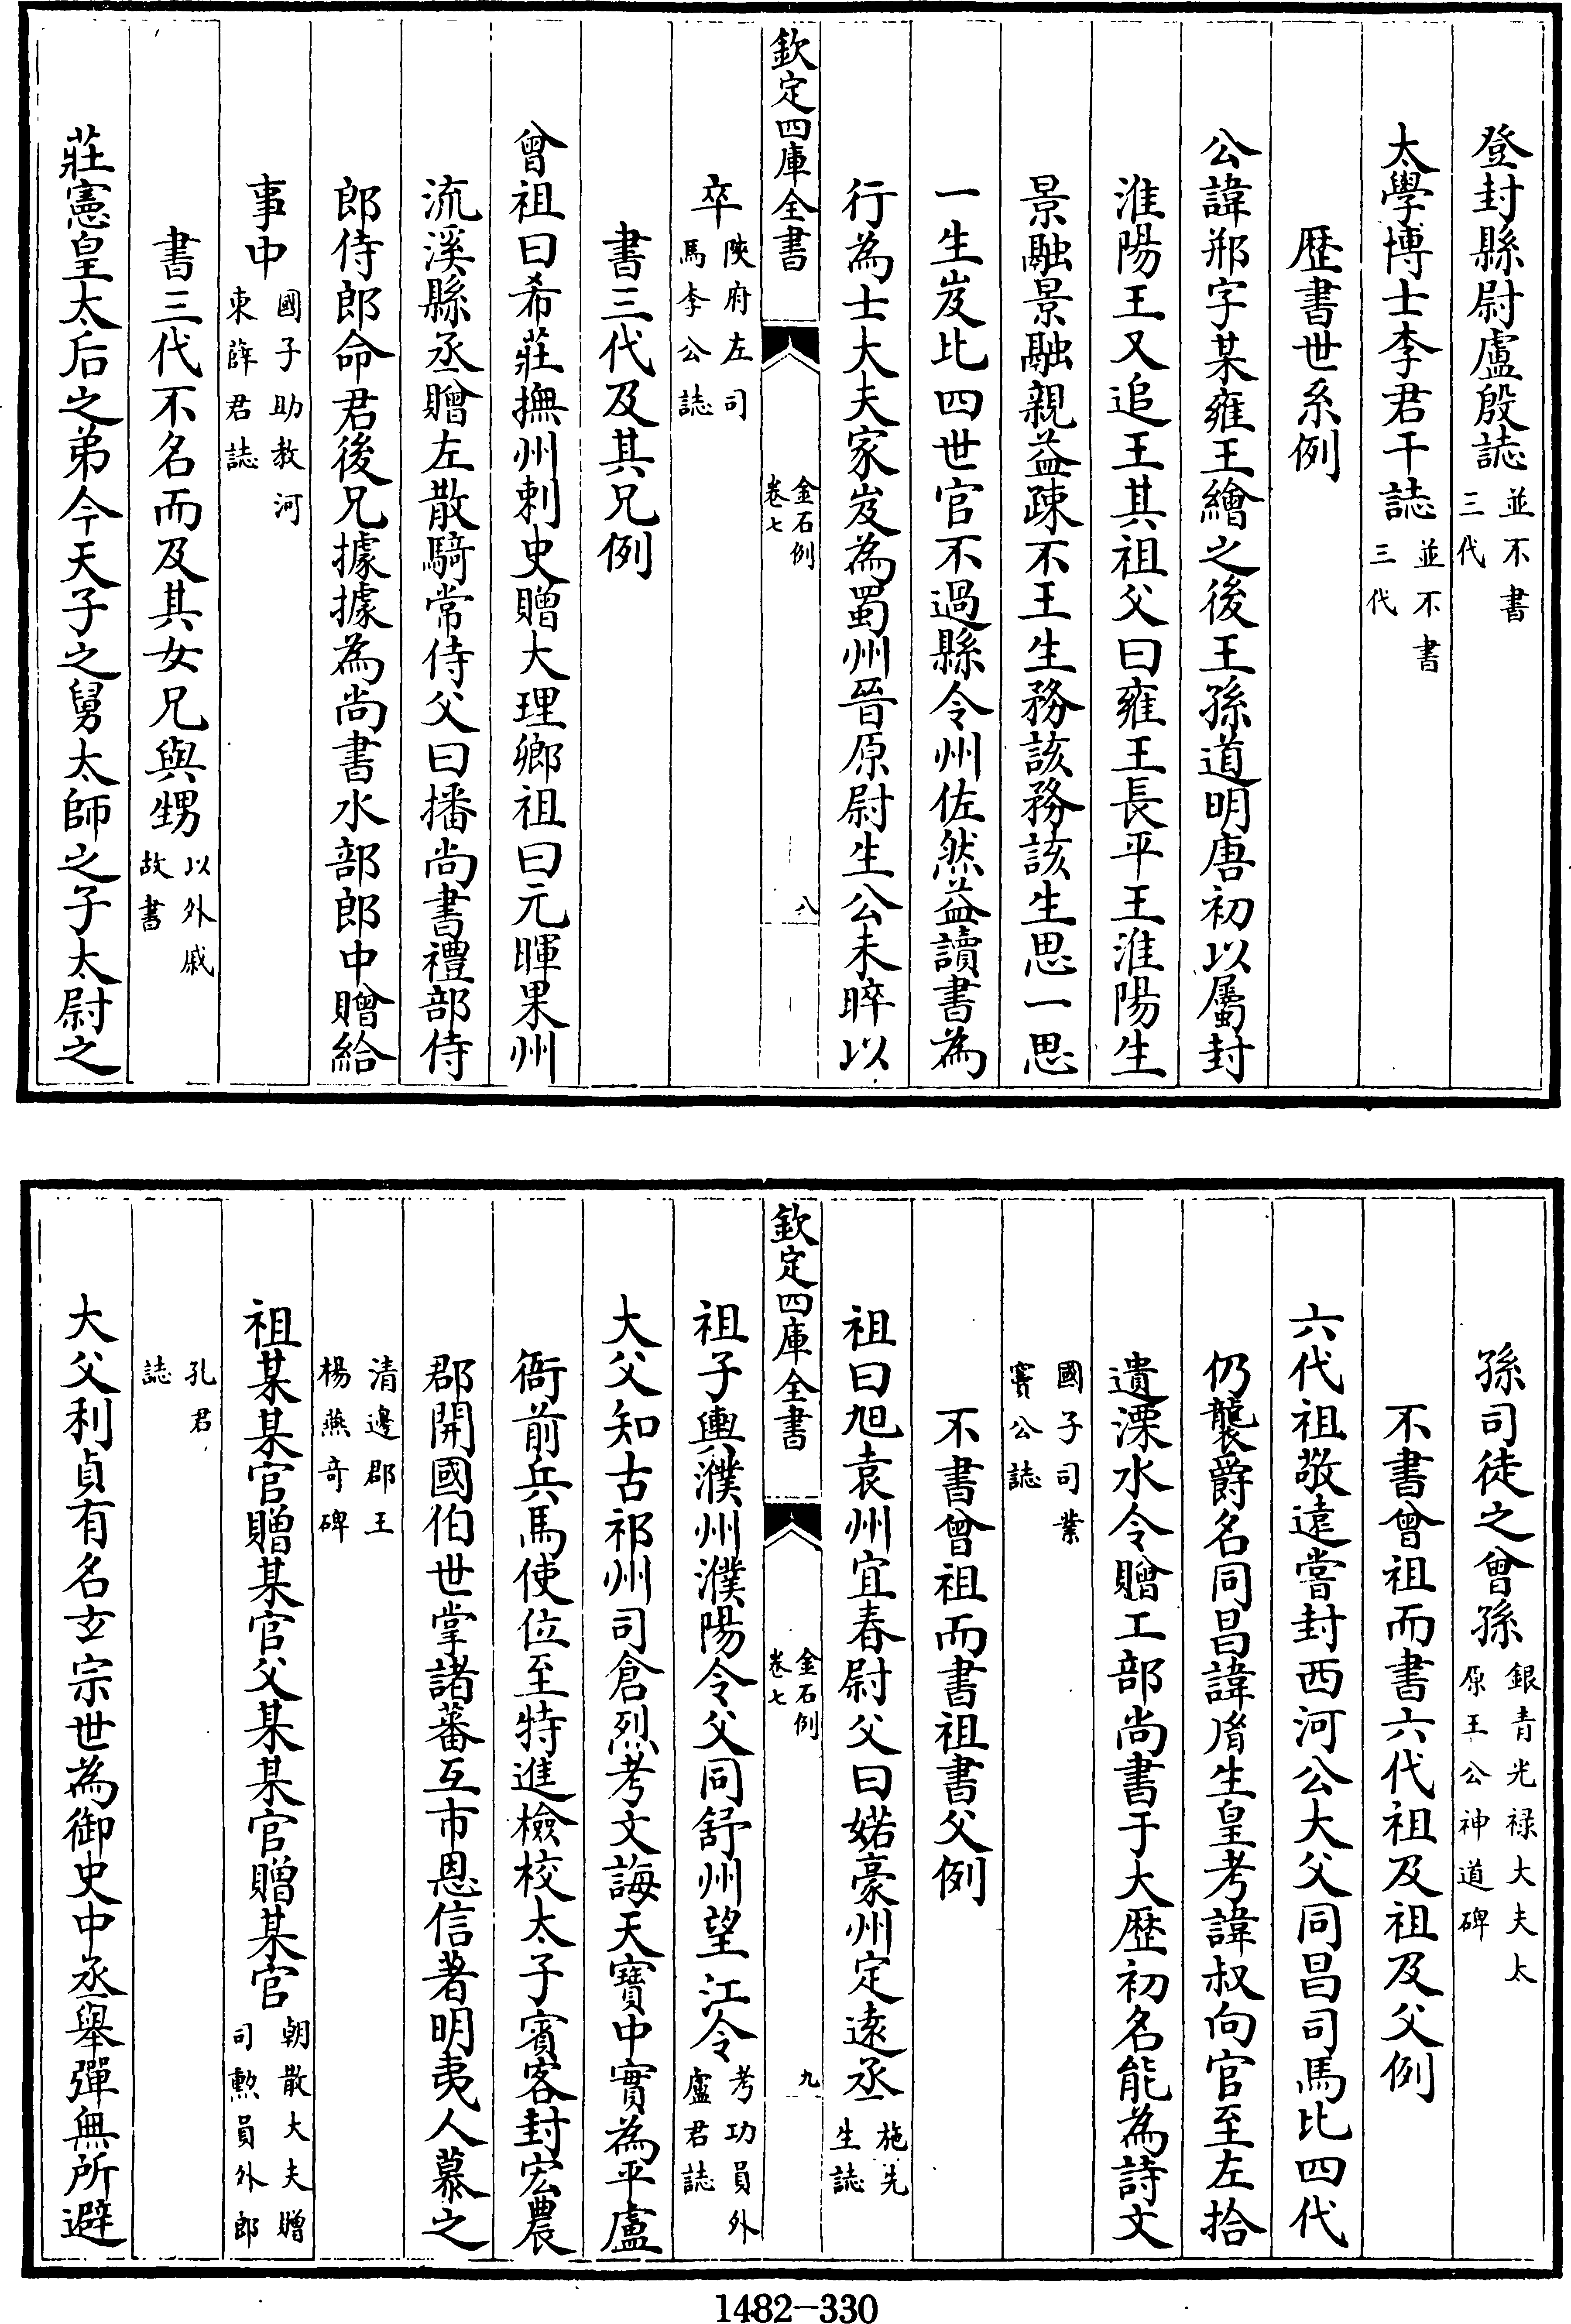 登封縣尉盧殷誌並不書三代
太學博士李君干誌並不書三代
歴書世系例
公諱邢字某雍王繪之後王孫道明唐初以屬封
淮陽王又追王其祖父曰雍王長平王淮陽生
景融景融親益疎不王生務該務該生思一思
一生岌比四世官不過縣令州佐然益讀書為
行為士大夫家岌為蜀州晉原尉生公未晬以
欽定四庫全書
金石例
卷七
八
卒陝府左司馬李公誌
書三代及其兄例
曾祖曰希莊撫州刺史贈大理卿祖曰元暉果州
流溪縣丞贈左散騎常侍父曰播尚書禮部侍
郎侍郎命君後兄據據為尚書水部郎中贈給
事中國子助教河東薛君誌
書三代不名而及其女兄與甥以外戚故書
莊憲皇太后之弟今天子之舅太師之子太尉之
孫司徒之曾孫銀青光禄大夫太原王公神道碑
不書曾祖而書六代祖及祖及父例
六代祖敬遠嘗封西河公大父同昌司馬比四代
仍襲爵名同昌諱胤生皇考諱叔向官至左拾
遺溧水令贈工部尚書于大歴初名能為詩文
國子司業竇公誌
不書曾祖而書祖書父例
祖曰旭袁州宜春尉父曰婼豪州定逺丞施先生誌
欽定四庫全書
金石例
卷七
九
祖子輿濮州濮陽令父同舒州望江令考功員外盧君誌
大父知古祁州司倉烈考文誨天寶中實為平盧
衙前兵馬使位至特進檢校太子賓客封宏農
郡開國伯世掌諸蕃互市恩信著明夷人慕之
清邊郡王楊燕竒碑
祖某某官贈某官父某某官贈某官朝散大夫贈司勲員外郎
孔君誌
大父利貞有名𤣥宗世為御史中丞舉彈無所避
1482-330